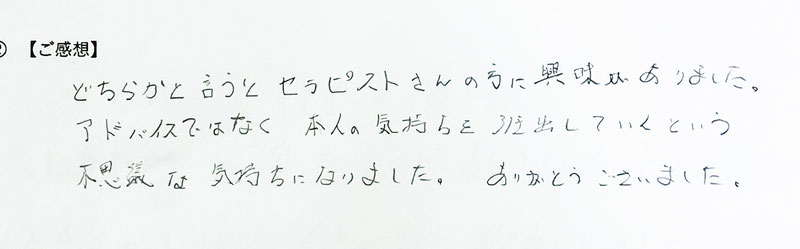 ② 【ご感想】
どちらかと言うと セラピストさんの方に興味がありました。
アドバイスではなく 本人の気持ちを 引き出していくという
不思議な 気持ちになりました。 ありがとうございました。